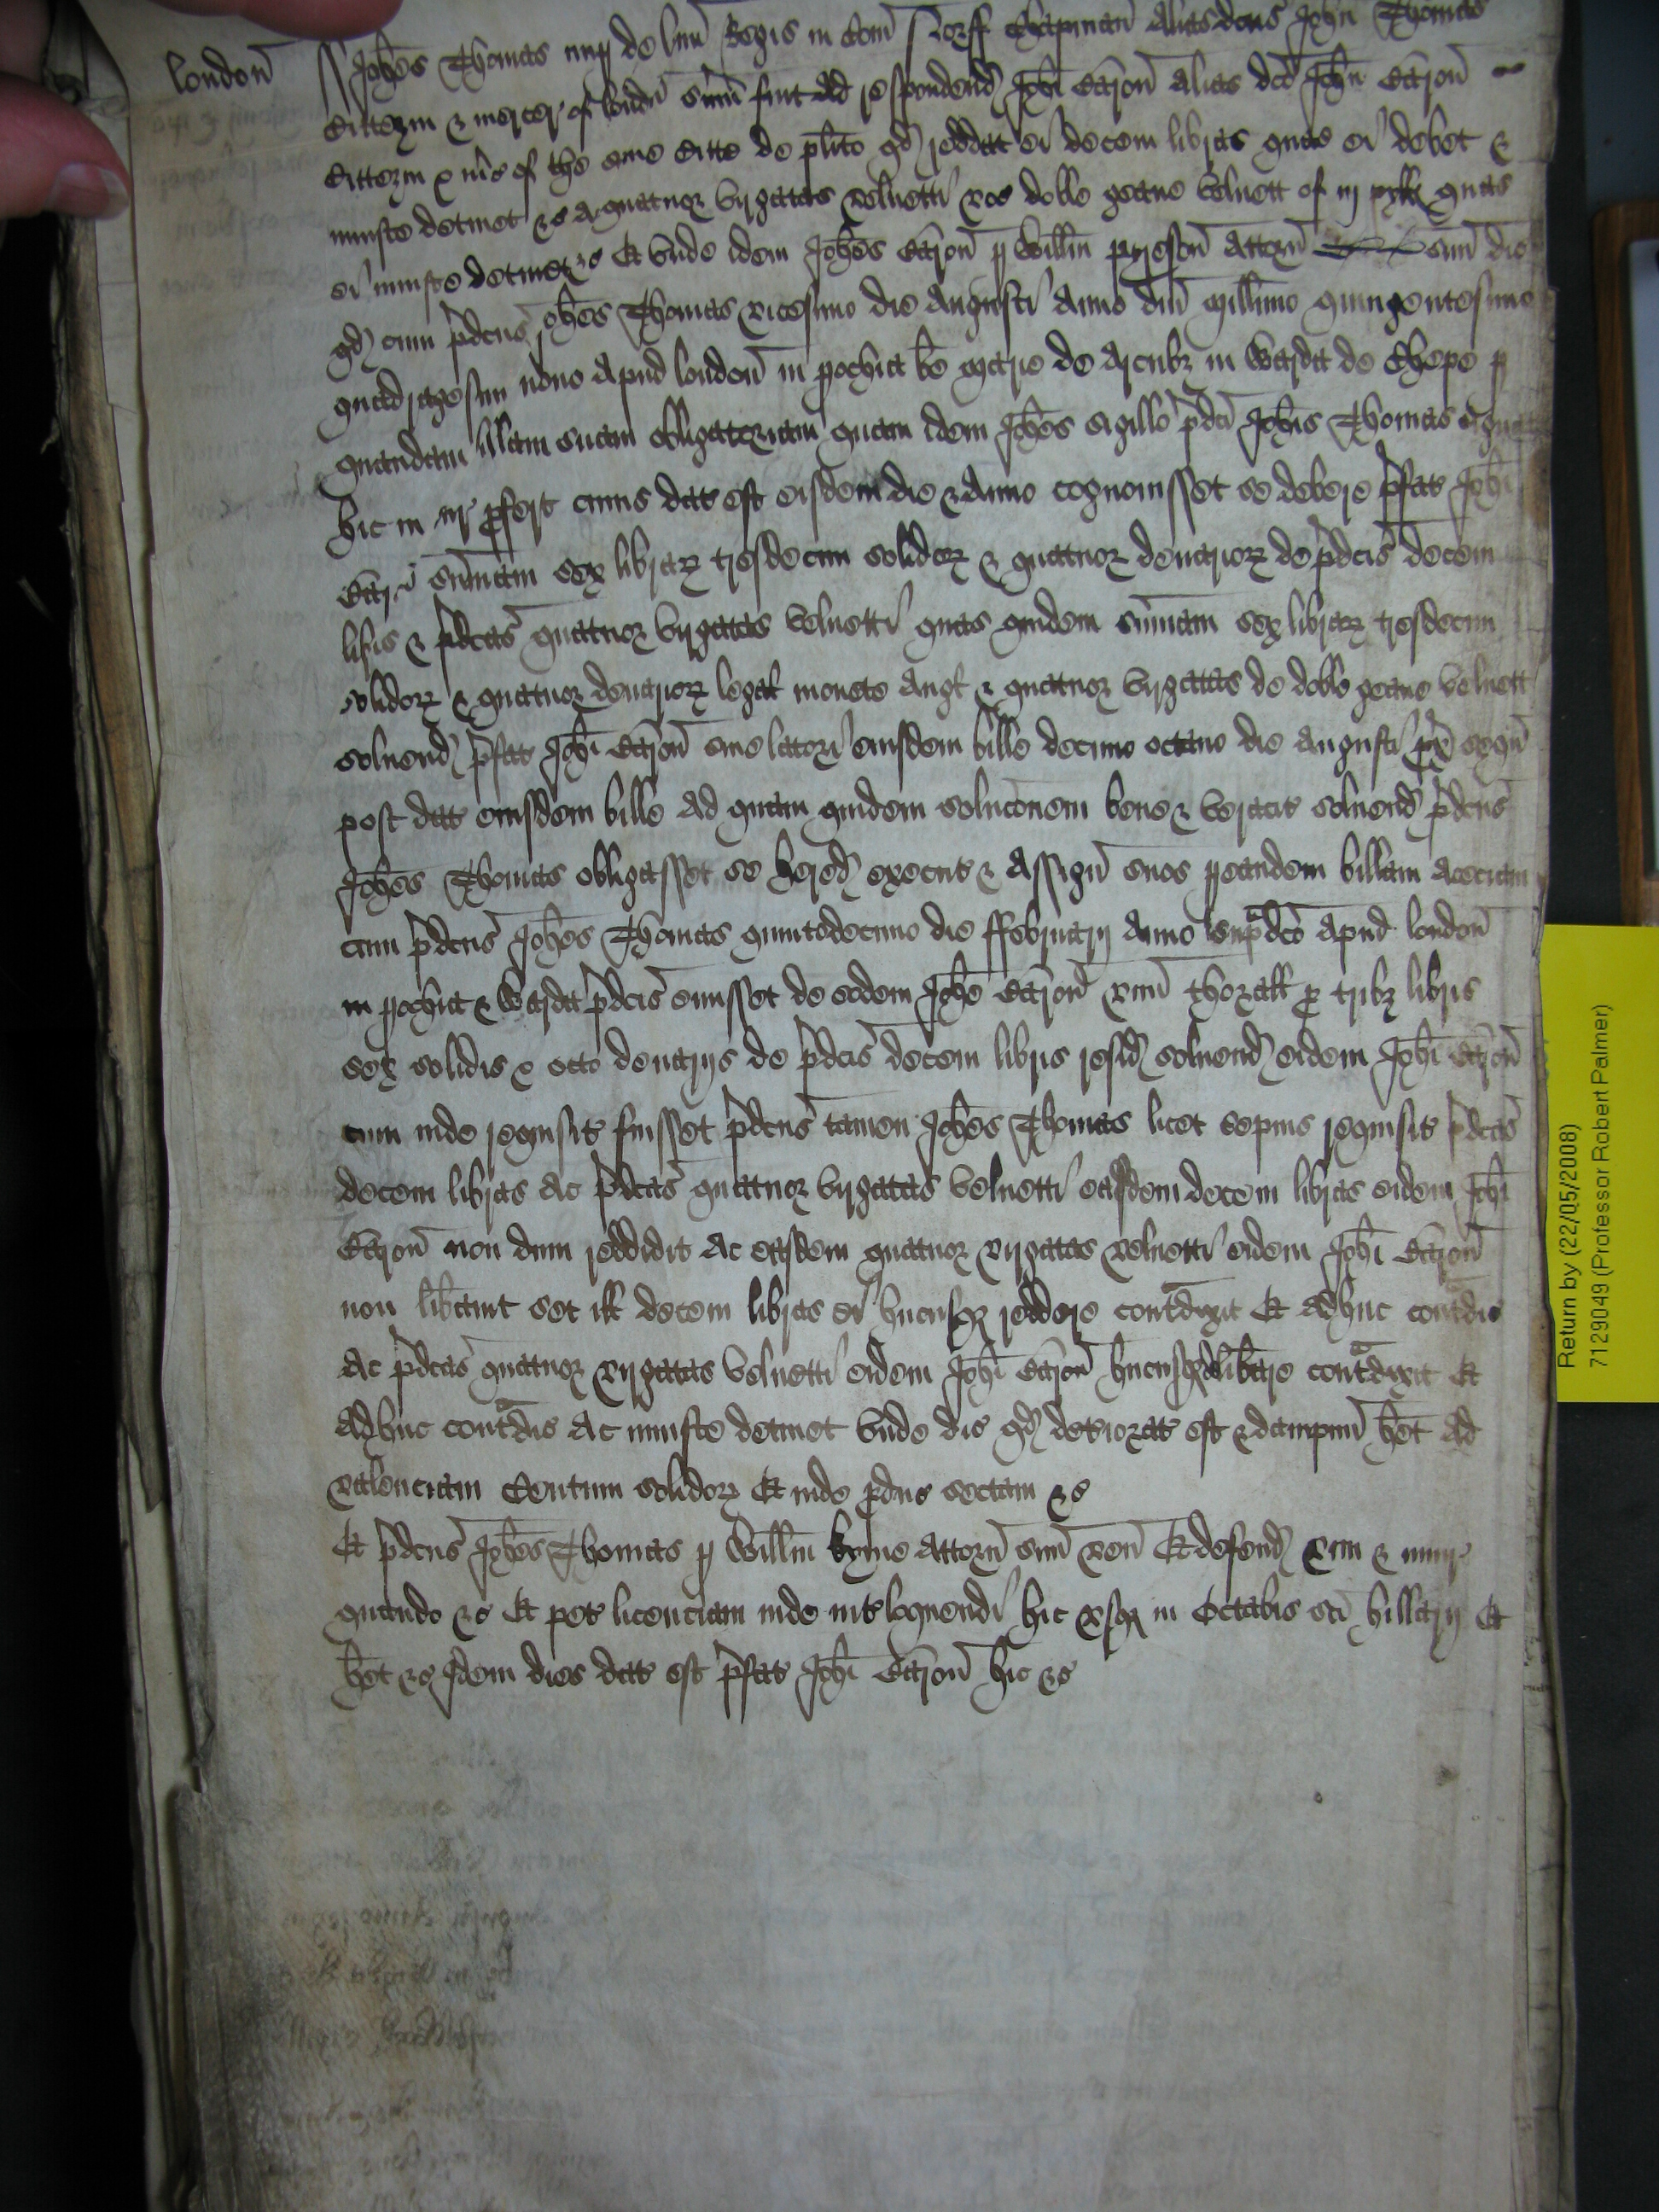 london
Joħes Thomas nup de lenn Regis in Com Norff Chapman alias dcus John Thomas
Cittezin & mercer of london sum fuit ad respondend Johi Carron alias dco John Carron
Cittezin & of the same Citte de plito qd reddat ei decem libras quas ei debet &
iniuste detinet &c Ac quatuor virgatas velvetti voc doble geane velvett of iij pyle quas
ei iniuste detinet &c Et unde idem Johes Carron p Willm attorn suum dic
qd cum pdcus Johes Thomas vicesimo die Augusti Anno dni Millimo quingentesimo
quadragesimo nono apud london in pochia be Marie de Arcubz in Warda de Chepe p
quandam billam suam obligatoriam quam idem Johes sigillo pdci Johis Thomas signat
hic in cur pfert cuius dat est eisdem die & Anno cognovisset se debere pfat Johi
Carron summam sex librarz tresdecim solidorz & quatuor denariorz de pdcis decem
libris & pdcas quatuor virgatas velvetti quas quidem summam sex librarz tresdecim
solidorz & quatuor denariorz legal monete Angl & quatuor virgatas de doble geane velvett
solvend pfat Johi Carron sive latori eiusdem bille decimo octavo die Augusti px sequ
post dat eiusdem bille Ad quam quidem solucionem bene & veracit solvend pdcus
Johes Thomas obligasset se hered execut & Assign suos p eandem billam Aceciam
cum pdcus Johes Thomas quintodecimo die ffebruarij Anno supradco apud london
in pochia & Warda pdcis emisset de eodem Johe Carron p tribz libris
sex solidis & octo denarijs de pdcis decem libris resid solvend eidem Johi Carron
cum inde requisit fuisset pdcus tamen Johes Thomas licet sepius requisit pdcas
decem libras Ac pdcas quatuor virgatas velvetti easdem decem libras eidem Johi
Carron non dum reddidit Ac easdem quatuor virgatas velvetti eidem Johi Carron
non libavit set ill decem libras ei hucusqz reddere contradixit Et adhuc contradic
Ac pdcas quatuor virgatas velvetti eidem Johi Carron hucusqz delibare contradixit Et
adhuc contradic Ac iniuste detinet unde dic qd deteriorat est & dampnu het ad
valenciam Centum solidorz Et inde pduc sectam &c
Et pdcus Johes Thomas p Willm kyme Attorn suum ven Et defend vim & iniur
quando &c Et pet licenciam inde intloquendi hic usqz in Octabis sci hillarij Et
het &c Idem dies dat est pfat Johi Carron hic &c
Return by (22/05/2008)
7129049 (Professor Robert Palmer)